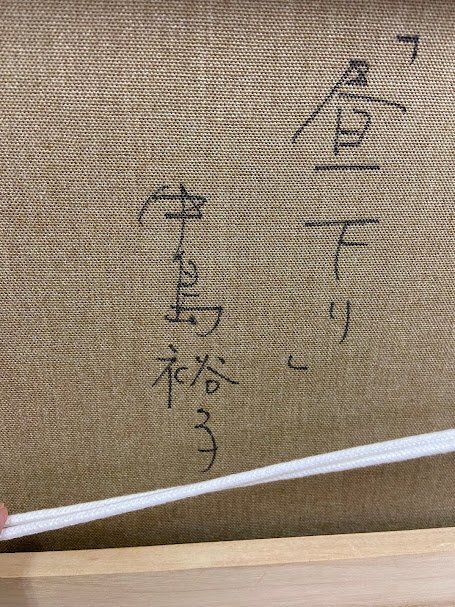 「昼下り」
中島裕子